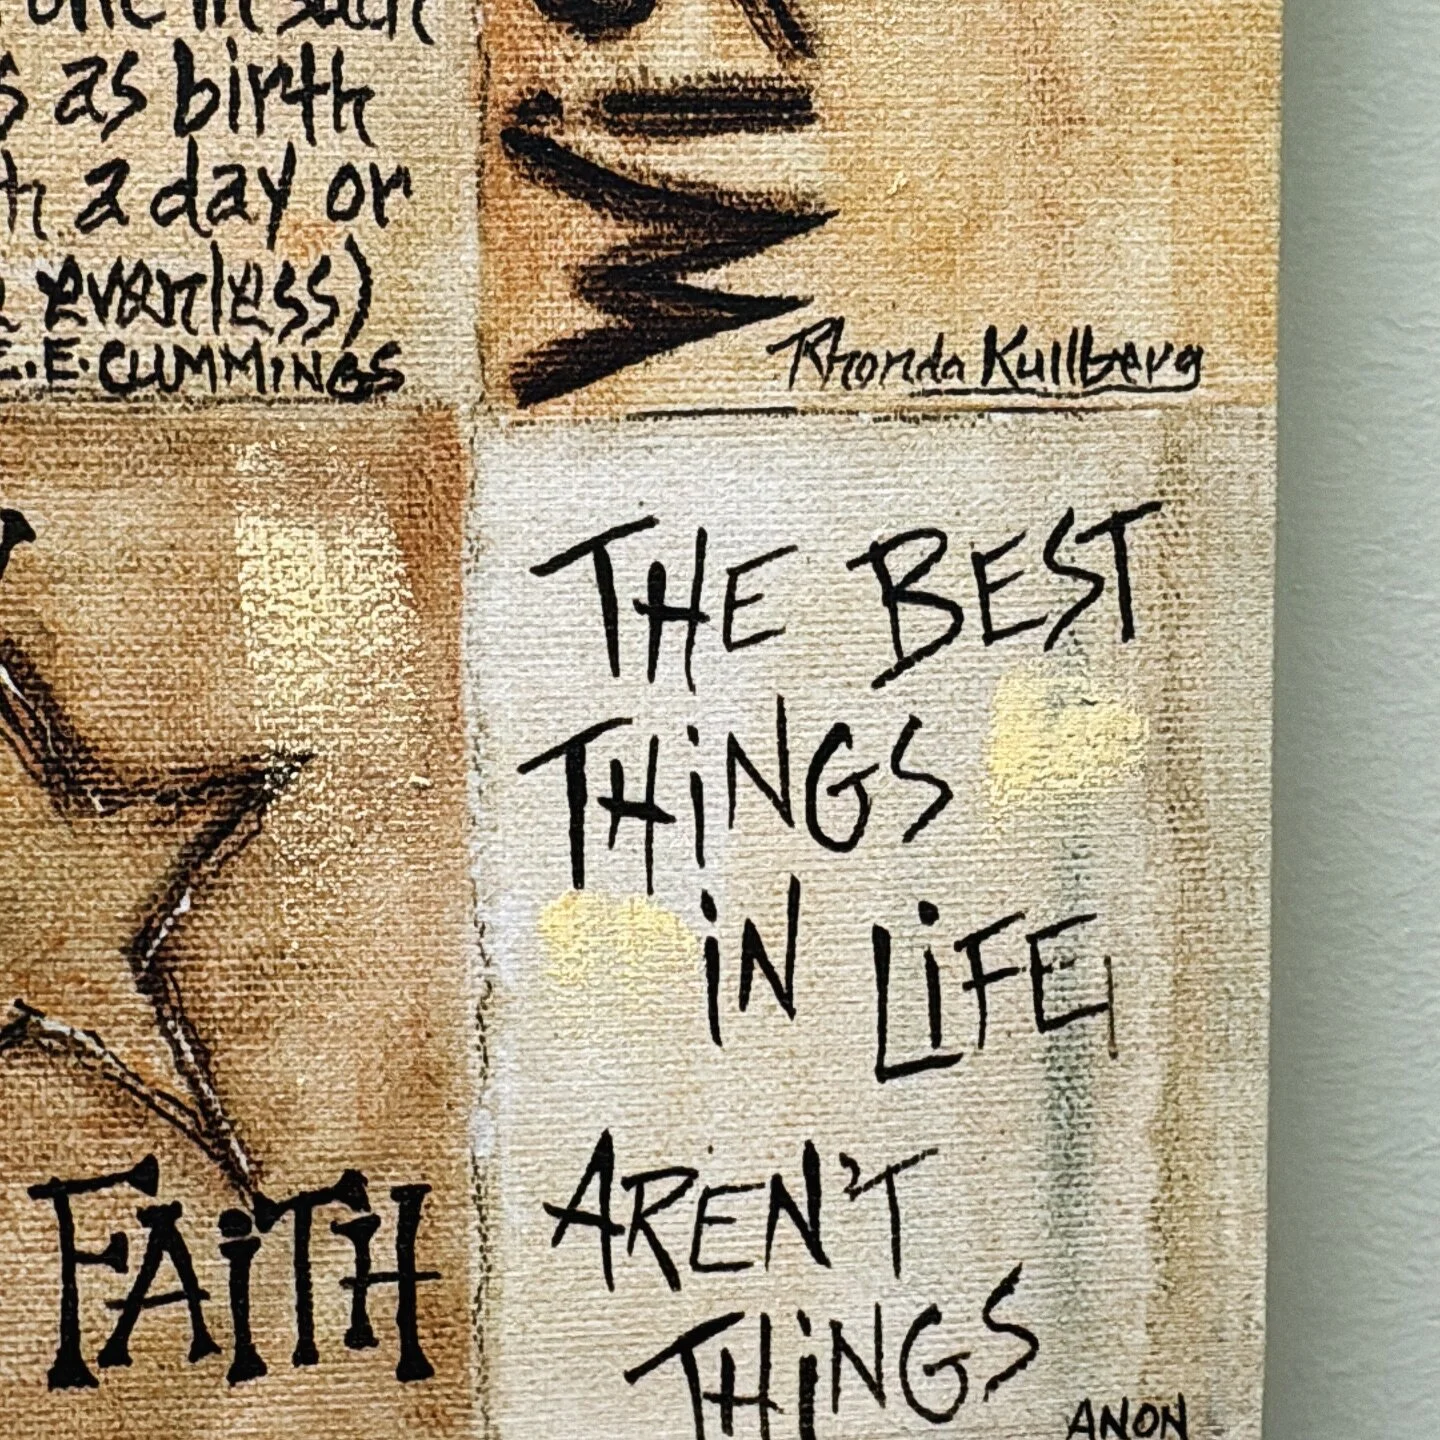 one in such
as birth
a day or
everless)
E.E. CUMMINGS
Rhonda Kullberg
FAiTH
THE BEST
THiNGS
iN LiFE,
AREN'T
THiNGS
ANON